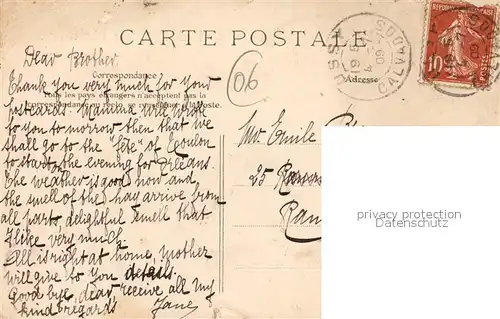 CARTE POSTALE
Correspondance
Tous les pays étrangers n'acceptent pas la
correspondance au recto, se renseigner à la Poste.
Adresse
06
RÉPUBLIQUE FRANÇAISE
10
USSY
CALVADOS
Dear Brother.
Thank you very much for your
postcards. Mamma will write
to you to morrow then that we
shall go to the "fête" of Coulon
to start the evening for Orléans.
The weather is good now and
the smell of the hay arrive from
all part, delightful smell that
I like very much.
All is right at home, mother
will give to you details.
Good bye, dear receive all my
kind regards
Jane
Mr. Emile
25
Ran
privacy protection
watermark